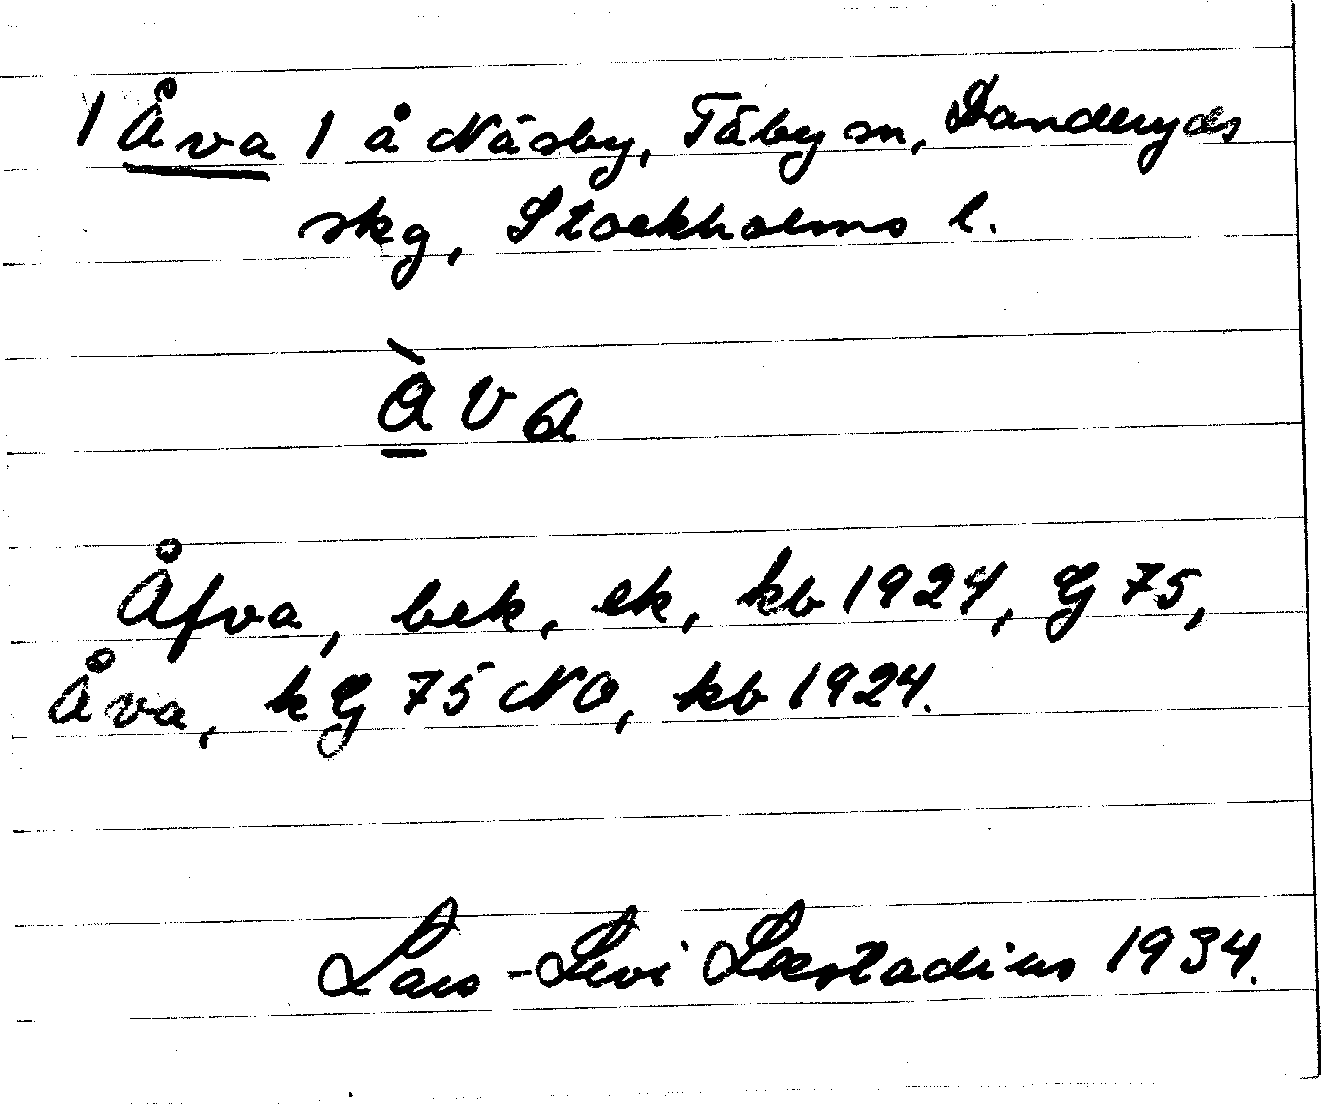 / Åva / å Näsby, Täby sn, Danderyds
skg, Stockholms l.
ὰ̱va
Åfva, bek, ek, kb 1924, G 75,
Åva, k G 75 NO, kb 1924.
Lars-Levi Læstadius 1934.